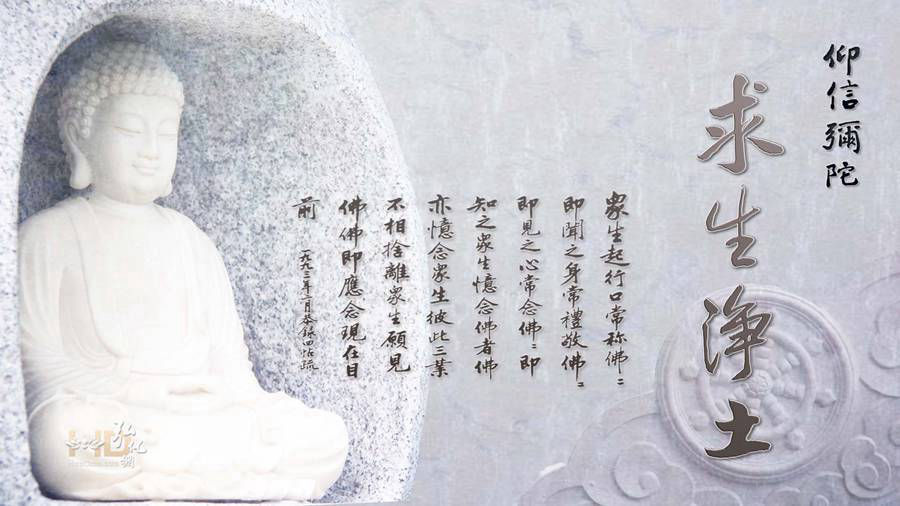 仰信彌陀
求生淨土
眾生起行口常称佛〻
即聞之身常禮敬佛〻
即見之心常念佛〻即
知之眾生憶念佛者佛
亦憶念眾生彼此三業
不相捨離眾生願見
佛佛即應念現在目
前
年 月恭錄四帖疏
HD
弘化